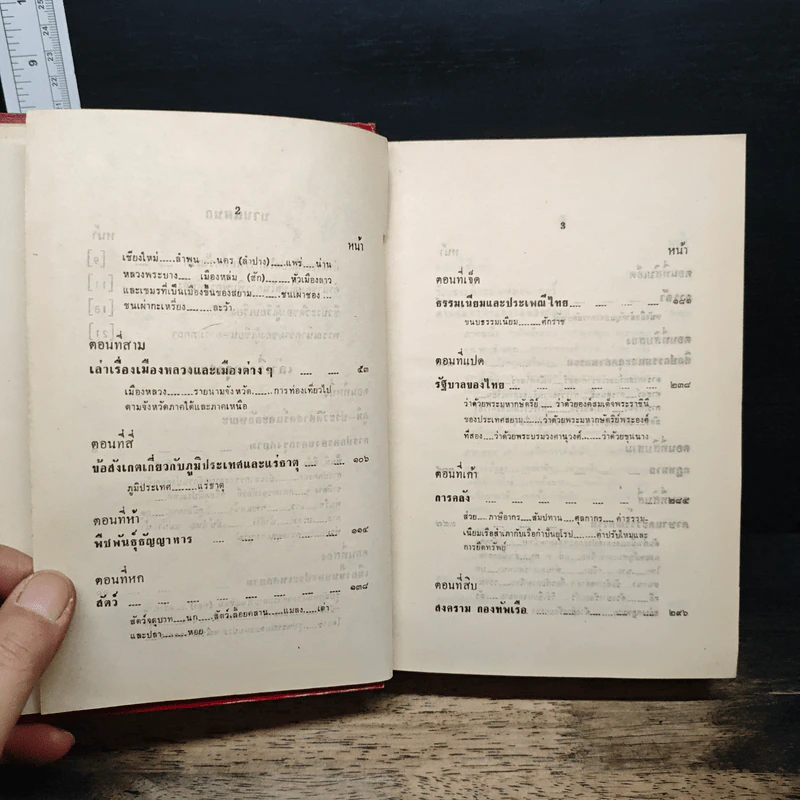 2
หน้า
เชียงใหม่.....ลำพูน ....นคร (ลำปาง).....แพร่....น่าน
หลวงพระบาง..... เมืองหล่ม (สัก).....หัวเมืองลาว
และเขมรที่เป็นเมืองขึ้นของสยาม.....ชนเผ่าซอง ...
ชนเผ่ากะเหรี่ยง.......ละว้า.
ตอนที่สาม
เล่าเรื่องเมืองหลวงและเมืองต่าง ๆ .... .... ๕๓
เมืองหลวง........รายนามจังหวัด......การท่องเที่ยวไป
ตามจังหวัดภาคใต้และภาคเหนือ
ตอนที่สี่
ข้อสังเกตเกี่ยวกับภูมิประเทศและแร่ธาตุ .... .... ๑๐๖
ภูมิประเทศ........แร่ธาตุ
ตอนที่ห้า
พืชพันธุ์ธัญญาหาร .... .... .... .... ๑๑๔
ตอนที่หก
สัตว์ .... .... .... .... .... ๑๓๘
สัตว์จตุบาท.....นก.....สัตว์เลื้อยคลาน.....แมลง.....เต่า
และปลา.........หอย
3
หน้า
ตอนที่เจ็ด
ธรรมเนียมและประเพณีไทย .... .... .... ๑๘๑
ขนบธรรมเนียม........ศักราช
ตอนที่แปด
รัฐบาลของไทย .... .... .... .... ๒๓๘
ว่าด้วยพระมหากษัตริย์.....ว่าด้วยองค์สมเด็จพระราชินี
ของประเทศสยาม.....ว่าด้วยพระมหากษัตริย์พระองค์
ที่สอง.....ว่าด้วยพระบรมวงศานุวงศ์.......ว่าด้วยขุนนาง
ตอนที่เก้า
การคลัง .... .... .... .... ๒๘๕
ส่วย.....ภาษีอากร....สัมปทาน.....ศุลกากร.....ค่าธรรม
เนียมเรือสำเภากับเรือกำปั่นยุโรป......ค่าปรับใหม่และ
การยึดทรัพย์
ตอนที่สิบ
สงคราม กองทัพเรือ .... .... .... ๒๙๖